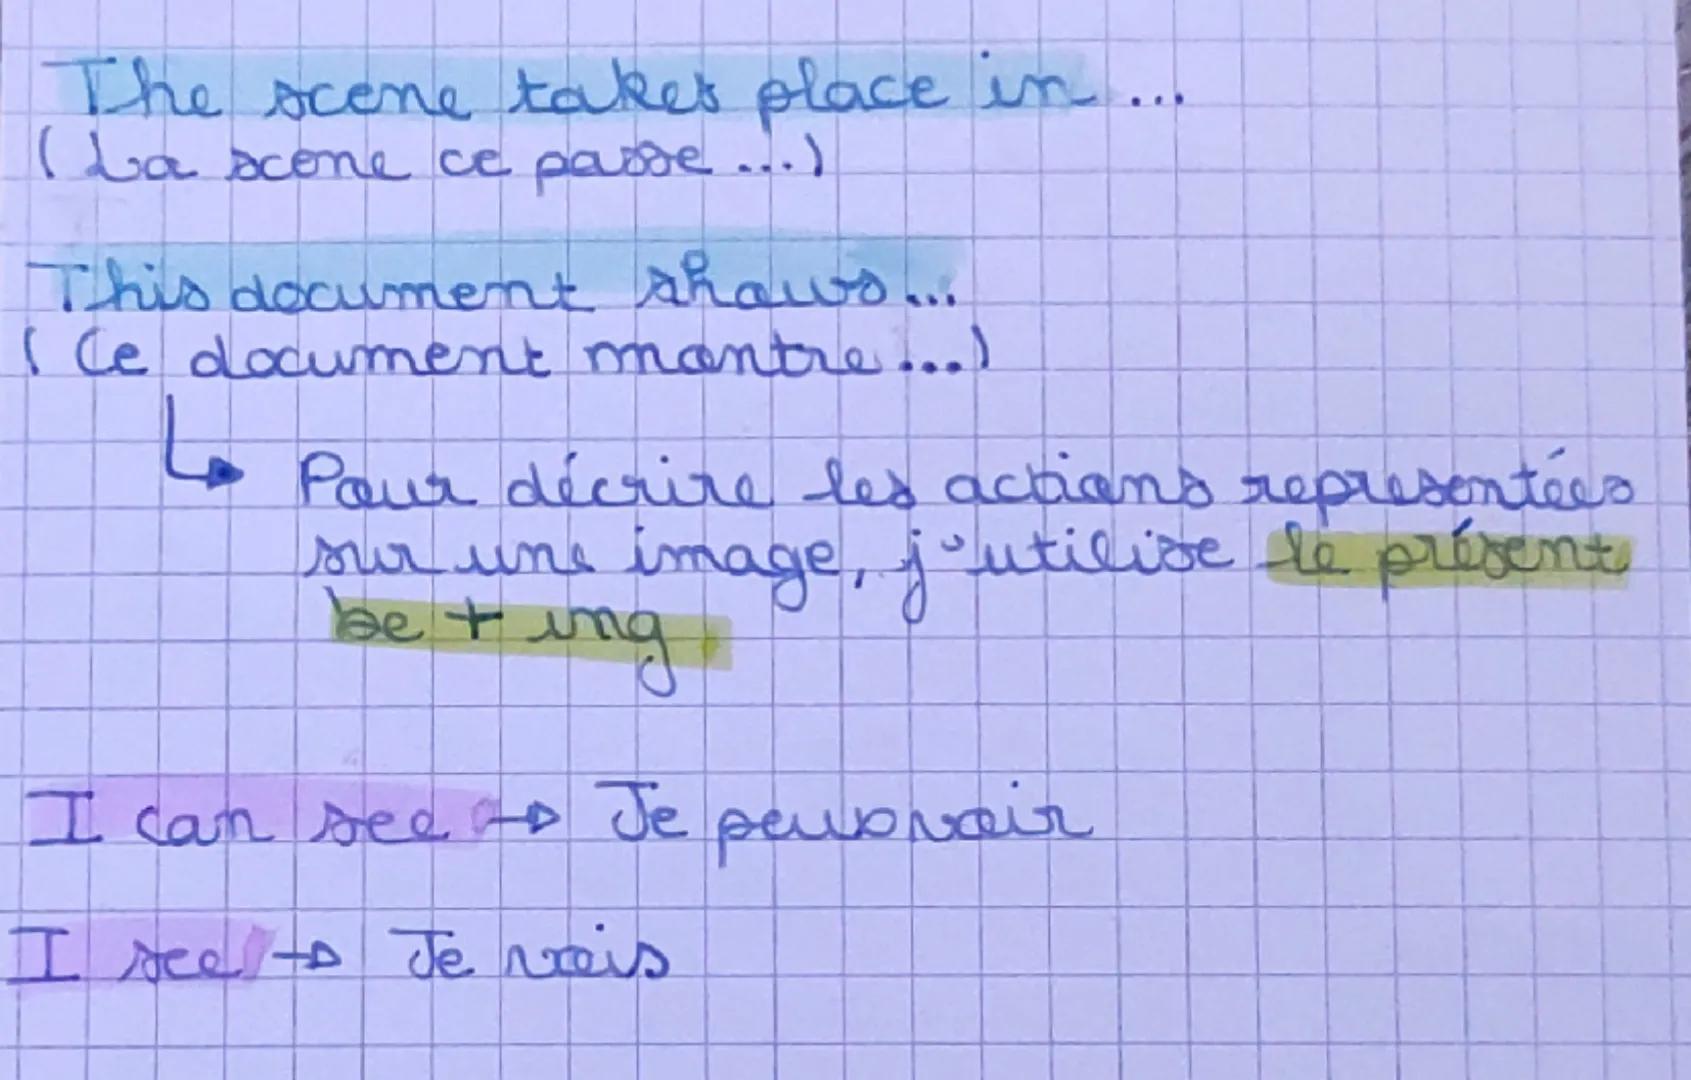 The scene takes place in ...
(La scène ce passe ...)
This document shows ...
(Ce document montre ...)
↳ Pour décrire les actions representées
sur une image, j'utilise le présent
be + ing
I can see → Je peuvoir
I see → Je vois